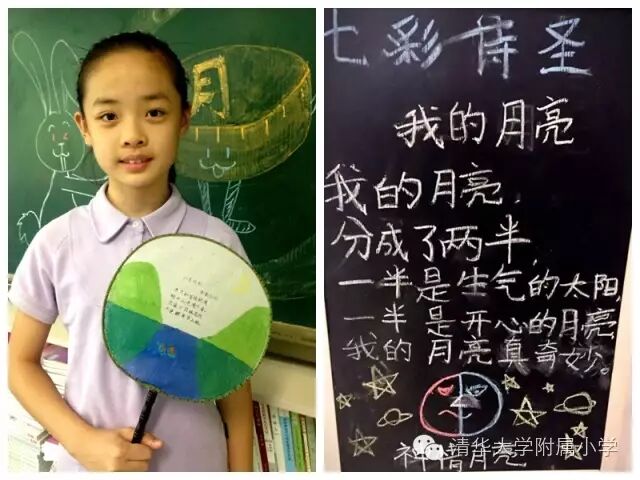 月
七彩诗圣
我的月亮
我的月亮,
分成了两半,
一半是生气的太阳,
一半是开心的月亮
我的月亮真奇妙。
神情月亮
清华大学附属小学